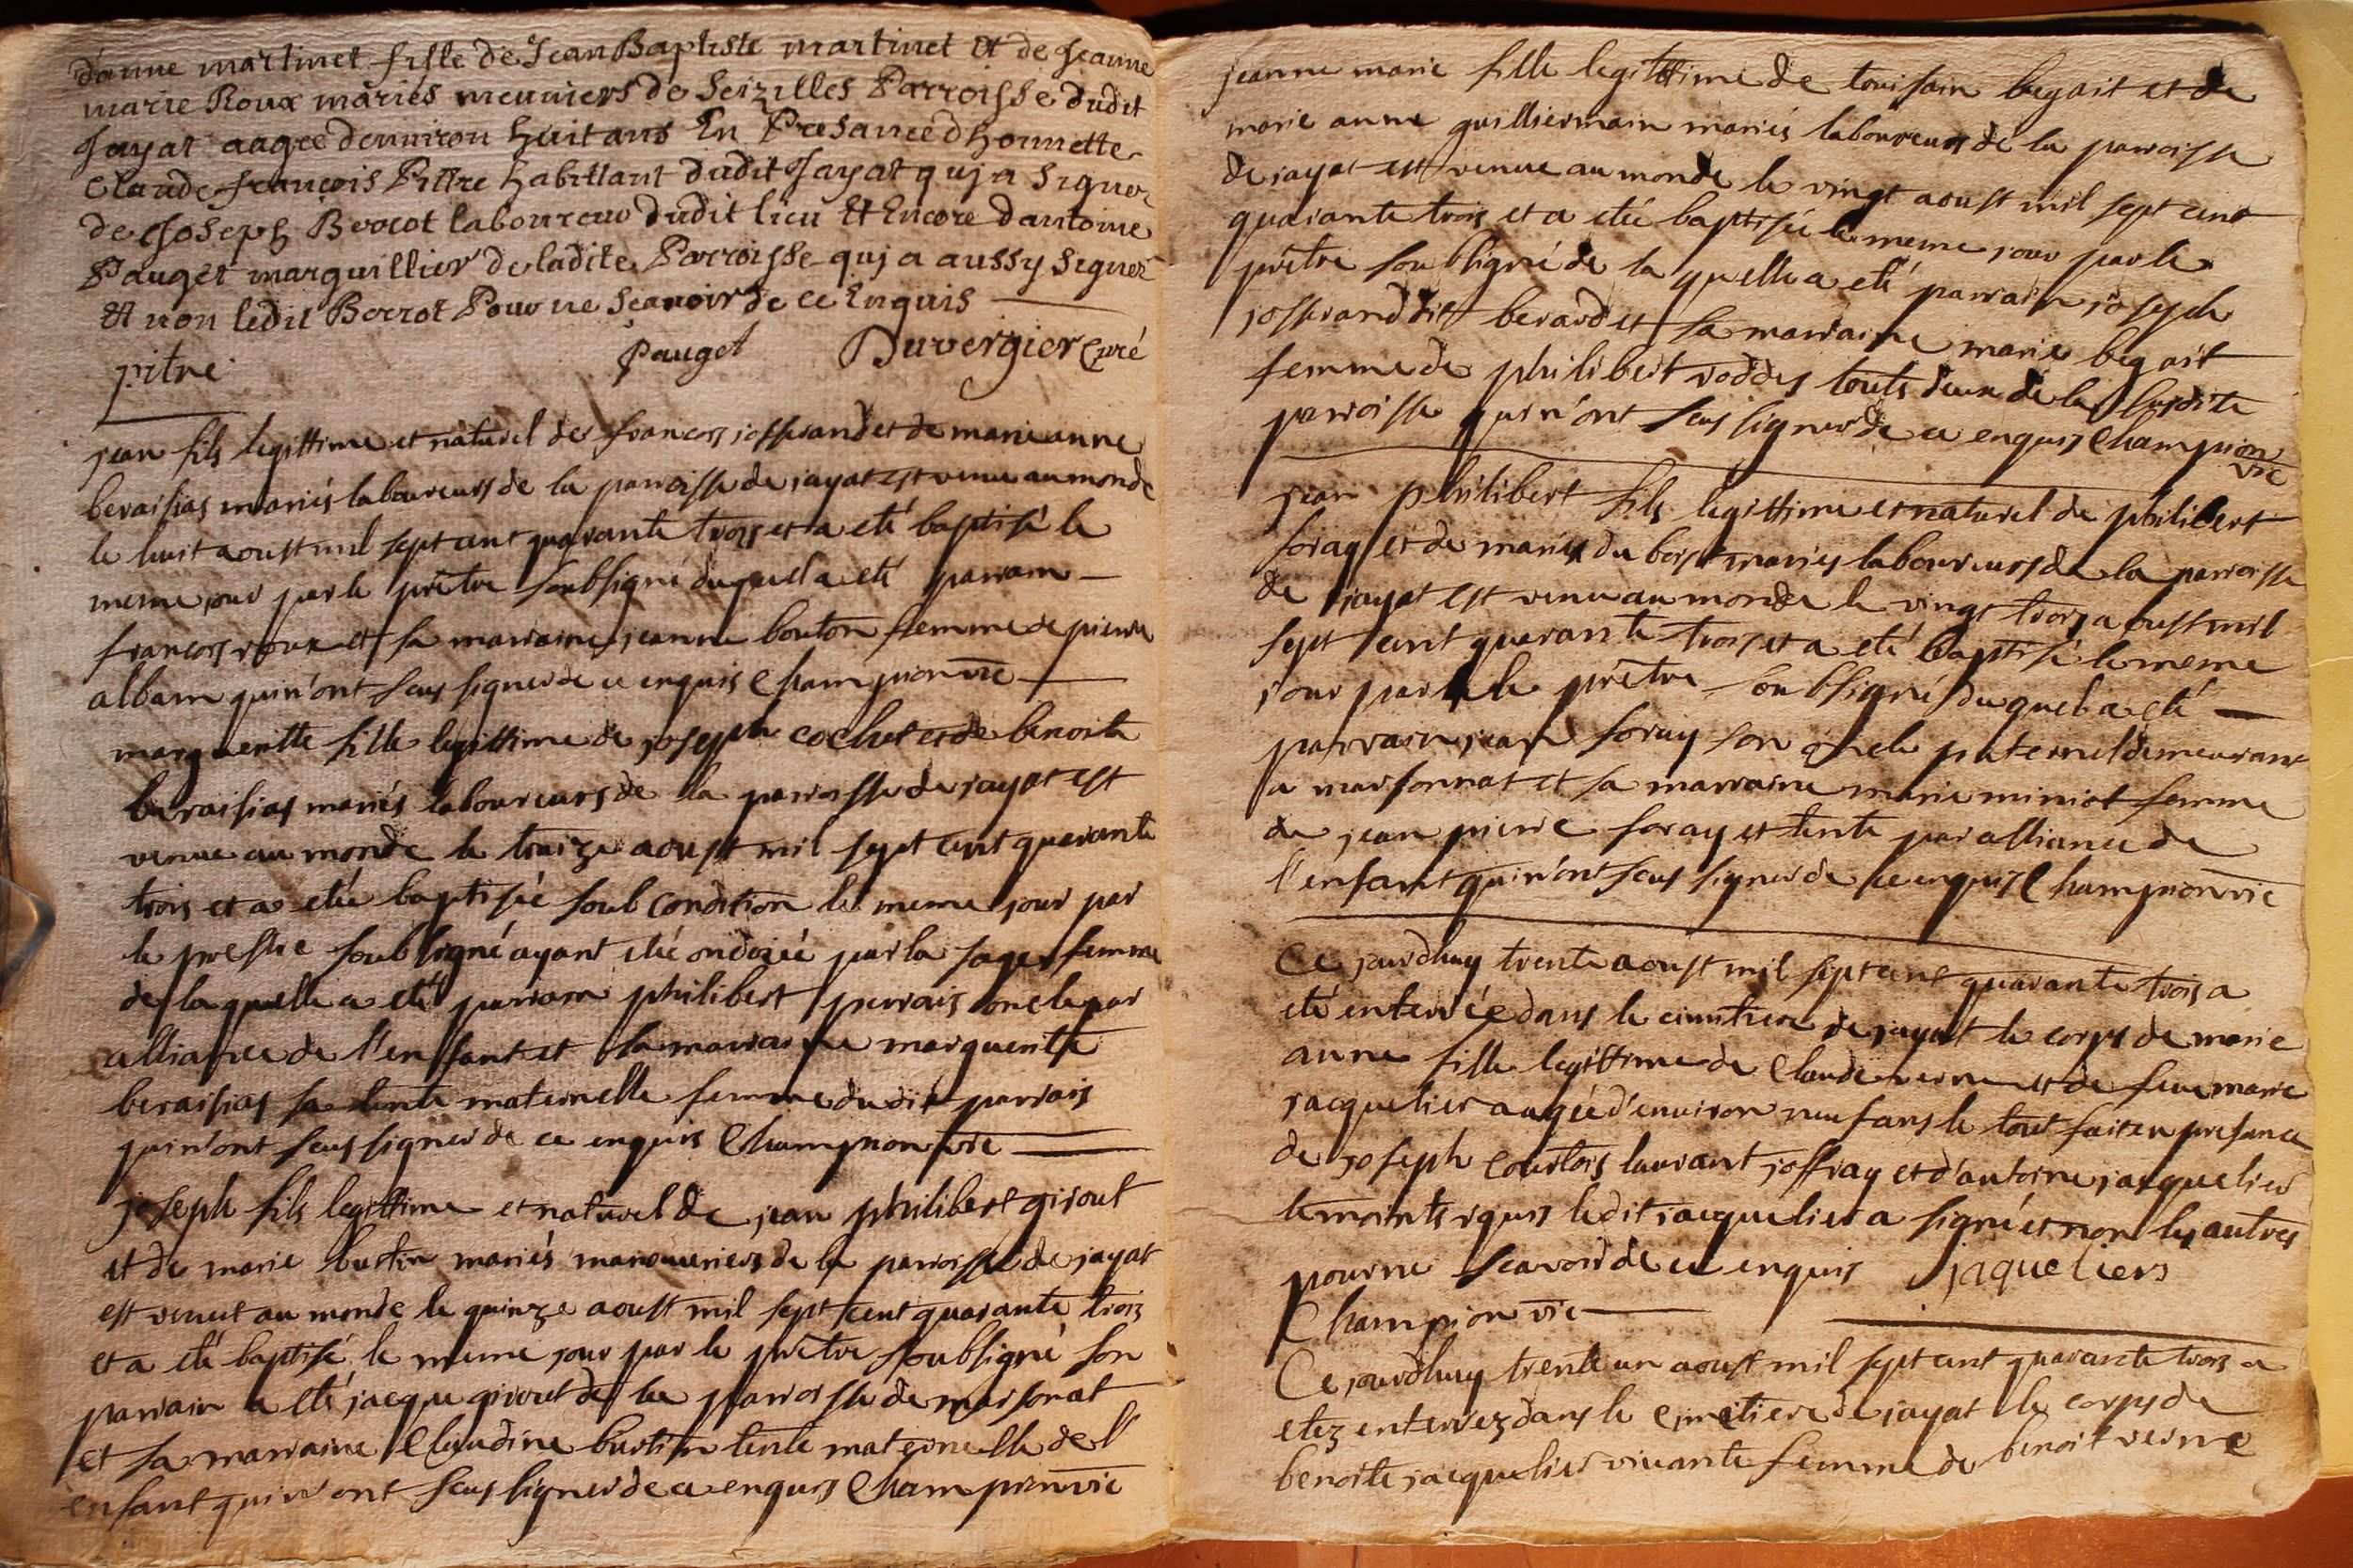 d'anne martinet fille de Jean Baptiste martinet et de Jeanne
marie Roux mariés meuniers de Seizilles Parroisse dudit
Jayat aagee denuiron huit ans En Presance dhonnette
Claude francois Pittre habittant dudit Jayat quj a Signer
de Joseph Borrot laboureur dudit lieu Et Encore dantoine
Pauget marguillier de ladite Parroisse quj a aussy Signer
Et non ledit Borrot Pour ne Scauoir de ce Enquis
pitre Pauget Duvergier Curé
jean fils legittime et naturel de francois josserand et de marianne
beraisias mariés laboureurs de la parroisse de jayat est venu au monde
le huit aoust mil sept cent quarante trois et a eté baptisé le
meme jour par le prêtre soubsigné duquel a eté parrain
francois roux et sa marraine jeanne bouton femme de pierre
albam qui n'ont seus signer de ce enquis Champion vic
margueritte fille legittime de joseph cochet et de benoite
beraisias mariés laboureurs de la parroisse de jayat est
venue au monde le traize aoust mil sept cent quarante
trois et a etée baptisée soub condition le meme jour par
le prestre soubsigné ayant etée ondoiée par la sage femme
de laquelle a eté parrain philibert perrais oncle par
alliance de l'enfant et sa marraine marguerite
beraisias sa tente maternelle femme dudit perrais
qui n'ont seus signer de ce enquis Champion vic
joseph fils legittime et naturel de jean philibert girout
et de marie burtin mariés manouuriers de la parroisse de jayat
est venut au monde le quinze aoust mil sept cent quarante trois
et a eté baptisé le meme jour par le prêtre soubsigné son
parrain a eté jacque girout de la parroisse de marsonat
et sa marraine Claudine burtin tente maternelle de l'
enfant qui n'ont seus signer de ce enquis Champion vic
jeanne marie fille legittime de touisain begait et de
marie anne guilliermain mariés laboureurs de la parroisse
de jayat est venue au monde le vingt aoust mil sept cent
quarante trois et a etée baptisée le meme jour par le
prêtre soubsigné de la quelle a eté parrain joseph
josserand dit berard et sa marraine marie begait
femme de philibert voddes touts deux de la susdite
parroisse qui n'ont seus signer de ce enquis Champion
vic
jean philibert fils legittime et naturel de philibert
foray et de marie du bois mariés laboureurs de la parroisse
de jayat est venu au monde le vingt trois aoust mil
sept cent quarante trois et a eté baptisé le meme
jour par le prêtre soubsigné duquel a eté
parrain jean foray son oncle paternel demeurant
a marsonnat et sa marraine marie miniot femme
de jean pierre foray et tente par alliance de
l'enfant qui n'ont seus signer de ce enquis Champion vic
Ce jourdhuy trente aoust mil sept cent quarante trois a
eté enterrée dans le cimitiere de jayat le corps de marie
anne fille legittime de Claude verne et de feue marie
jacquelier aagée d'enuiron neuf ans le tout fait en presence
de joseph Courtois laurant joffray et d'antoine jacquelier
temoints rquis ledit jacquelier a signé et non les autres
pour ne scavoir de ce enquis jaqueliers
Champion vic
Ce jourdhuy trente un aoust mil sept cent quarante trois a
etez enterrez dans le cimetiere de jayat le corps de
benoite jacquelier vivante femme de benoit verne